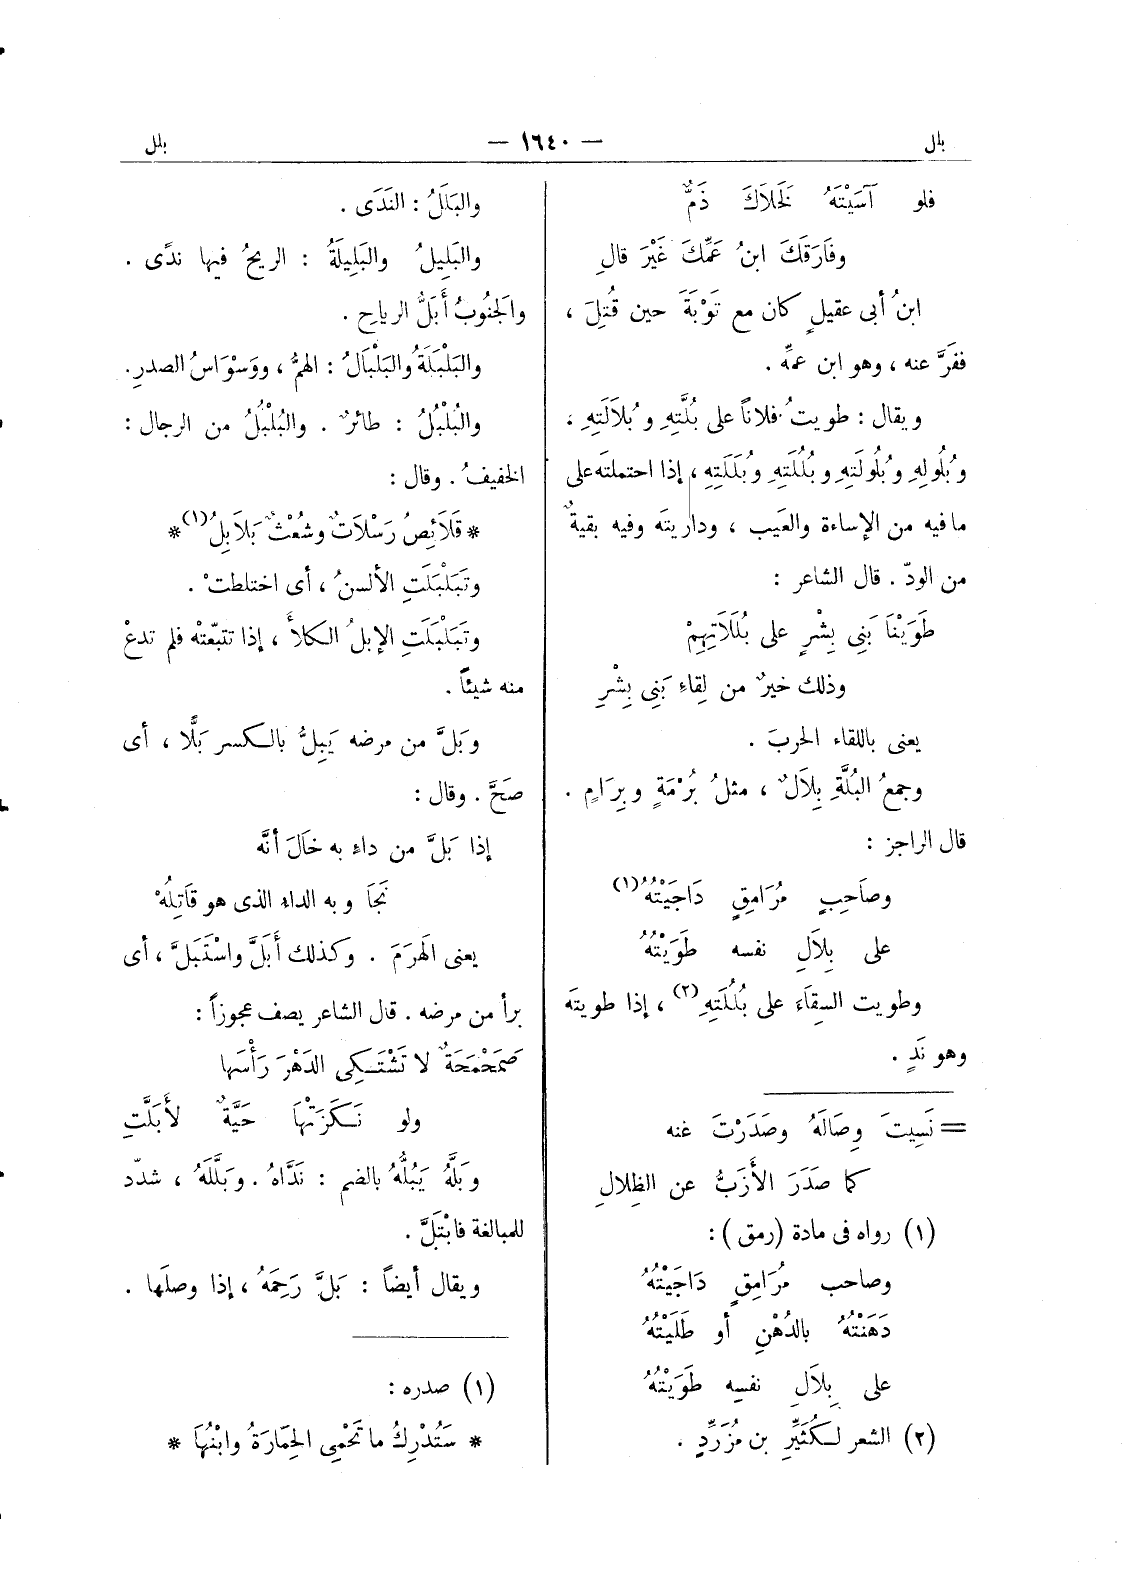 بلل
— ١٦٤٠ —
بلل
فلو آسَيْتَهُ لَخَلاَكَ ذَمٌّ
وفَارَقَكَ ابنُ عَمِّكَ غَيْرَ قالِ
ابنُ أبى عقيلٍ كان مع تَوْبَةَ حين قُتِلَ ،
ففَرَّ عنه ، وهو ابن عمِّه .
ويقال : طويتُ فلاناً على بُلَّتِهِ وبُلاَلَتِهِ ،
وبُلُولِهِ وبُلُولَتِهِ وبُلُلَتِهِ وبُلَلَتِهِ ، إذا احتملتَه على
ما فيه من الإساءة والعَيب ، وداريتَه وفيه بقيةٌ
من الودّ . قال الشاعر :
طَوَيْنَا بَنِى بِشْرٍ على بُلَلاَتِهِمْ
وذلك خيرٌ من لِقاءِ بَنِى بِشْرِ
يعنى باللقاء الحربَ .
وجمعُ البُلَّةِ بِلاَلٌ ، مثلُ بُرْمَةٍ وبِرَامٍ .
قال الراجز :
وصاَحِبٍ مُرَامِقٍ دَاجَيْتُهُ(١)
على بِلاَلِ نفسه طَوَيْتُهُ
وطويت السِقاَءَ على بُلُلَتِهِ(٢) ، إذا طويتَه
وهو نَدٍ .
= نَسِيتَ وِصَالَهُ وصَدَرْتَ عنه
كما صَدَرَ الأَزَبُّ عن الظِلالِ
(١) رواه فى مادة (رمق) :
وصاحب مُرَامِقٍ دَاجَيْتُهُ
دَهَنْتُهُ بالدُهْنِ أو طَلَيْتُهُ
على بِلاَلِ نفسِه طَوَيْتُهُ
(٢) الشعر لـكُثَيِّرِ بن مُزَرِّدٍ .
والبَلَلُ : النَدَى .
والبَلِيلُ والبَلِيلَةُ : الريحُ فيها ندًى .
والجَنُوبُ أَبَلُّ الرياحِ .
والبَلْبَلَةُ والبَلْبَالُ : الهمُّ ، ووَسْوَاسُ الصدرِ.
والبُلْبُلُ : طائرٌ . والبُلْبُلُ من الرجال :
الخفيفُ . وقال :
* قَلاَئِصُ رَسْلاَتٌ وشُعْثٌ بَلاَبِلُ(١) *
وتَبَلْبَلَتِ الألسنُ ، أى اختلطتْ .
وتَبَلْبَلَتِ الإبلُ الكلأَ ، إذا تتبّعتْه فلم تدعْ
منه شيئاً .
وبَلَّ من مرضه يَبِلُّ بالـكسر بَلًّا ، أى
صَحَّ . وقال :
إذا بَلَّ من داءٍ به خاَلَ أنَّه
نَجَا وبه الداء الذى هو قَاتِلُهْ
يعنى الهَرَمَ . وكذلك أَبَلَّ واسْتَبَلَّ ، أى
برأ من مرضه . قال الشاعر يصف عجوزاً :
صَمَحْمَحَةٌ لا تَشْتَـكِى الدَهْرَ رَأْسَها
ولو نَـكَزَتْهاَ حَيَّةٌ لأَبَلَّتِ
وبَلَّهُ يَبُلُّهُ بالضم : نَدَّاهُ . وبَلَّلَهُ ، شدّد
للمبالغة فابْتَلَّ .
ويقال أيضاً : بَلَّ رَحِمَهُ ، إذا وصلَها .
(١) صدره :
* سَتُدْرِكُ ما تَحْمِى الحِمَارَةُ وابْنُهَا *